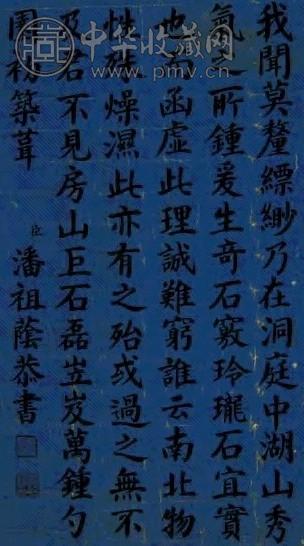 中华收藏网
www.pmv.cn
我聞莫釐縹緲乃在洞庭中湖山秀
氣之所鍾爰生奇石竅玲瓏石宜實
也而函虛此理誠難窮誰云南北物
性殊燥濕此亦有之殆或過之無不
及君不見房山巨石磊岦岌萬鍾勺
園初築葺 臣潘祖蔭恭書